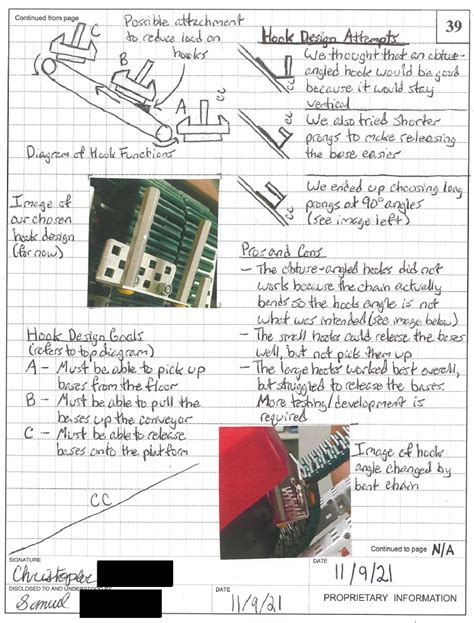 Continued from page
39
Possible attachment
to reduce load on
hooks
C
B
A
Diagram of Hook Functions
Hook Design Attempts
We thought that an obtuse-
angled hook would be good
because it would stay
vertical
We also tried shorter
prongs to make releasing
the base easier
We ended up choosing long
prongs at 90° angles
(see image left)
Image of
our chosen
hook design
(for now)
Pros and Cons
- The obtuse-angled hooks did not
work because the chain actually
bends so the hook's angle is not
what was intended (see image below)
- The small hooks could release the bases
well, but not pick them up
- The large hooks worked best overall,
but struggled to release the bases.
More testing/development is
required
Hook Design Goals
(refers to top diagram)
A - Must be able to pick up
bases from the floor
B - Must be able to pull the
bases up the conveyor
C - Must be able to release
bases onto the platform
CC
Image of hook
angle changed by
bent chain
Continued to page N/A
SIGNATURE
Christopher
DATE
11/9/21
DISCLOSED TO AND UNDERSTOOD BY
Samuel
DATE
11/9/21
PROPRIETARY INFORMATION